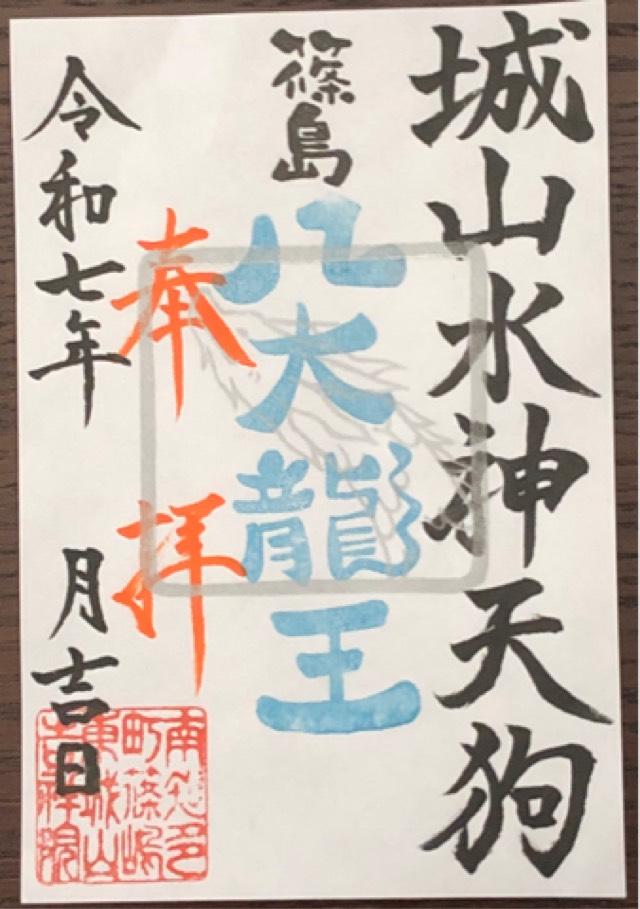 城山水神天狗
篠島
八大龍王
奉拝
令和七年 月吉日
南知多
町篠嶋
東城山
吉祥院